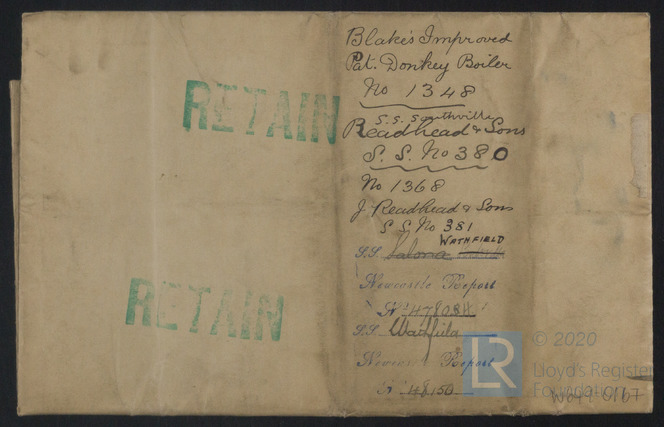 RETAIN
RETAIN
Blake's Improved
Pat. Donkey Boiler
No 1348
S.S. Southville
Readhead & Sons
S. S. No 380
No 1368
J. Readhead & Sons
S S No 381
WATHFIELD
S.S.
Newcastle Report
No 47808
S.S. Wathfield
Newcastle Report
No 48150
LR
© 2020
Lloyd's Register
Foundation
0167